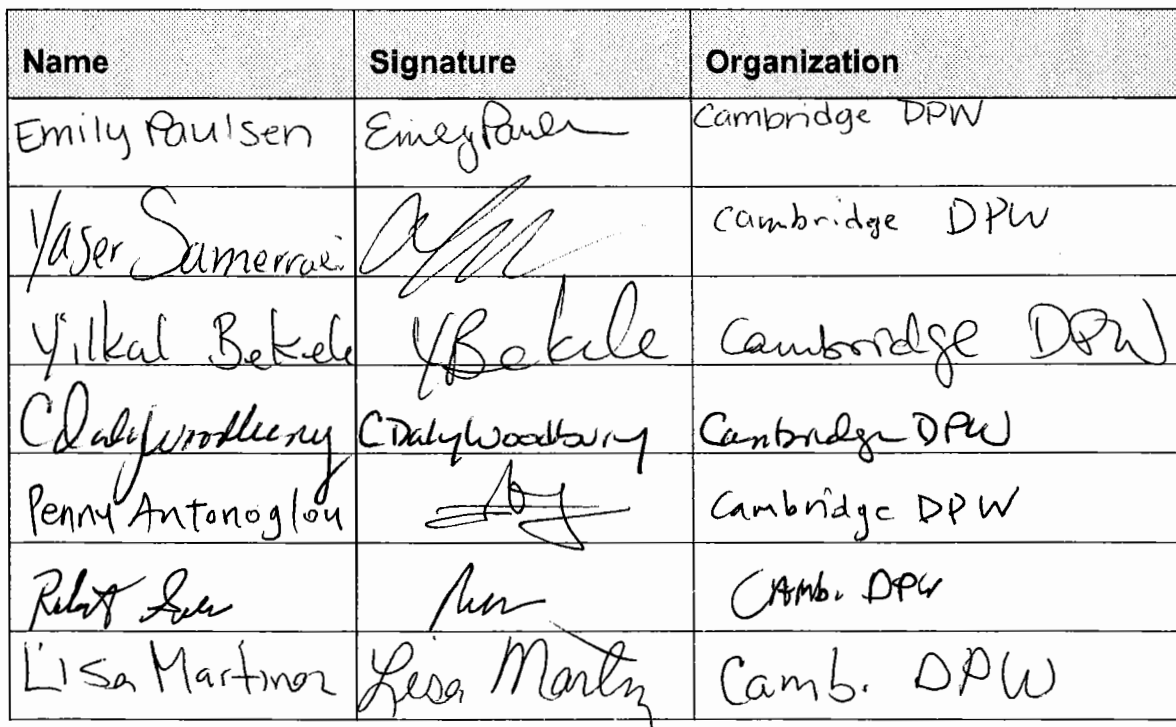 Name Signature Organization
Emily Paulsen Emily Paulsen Cambridge DPW
Yaser Samerrai Cambridge DPW
Yilkal Bekele YBekele Cambridge DPW
CDalyWoodbury CDalyWoodbury Cambridge DPW
Penny Antonoglou Cambridge DPW
Robert Camb. DPW
Lisa Martinez Lisa Martinz Camb. DPW